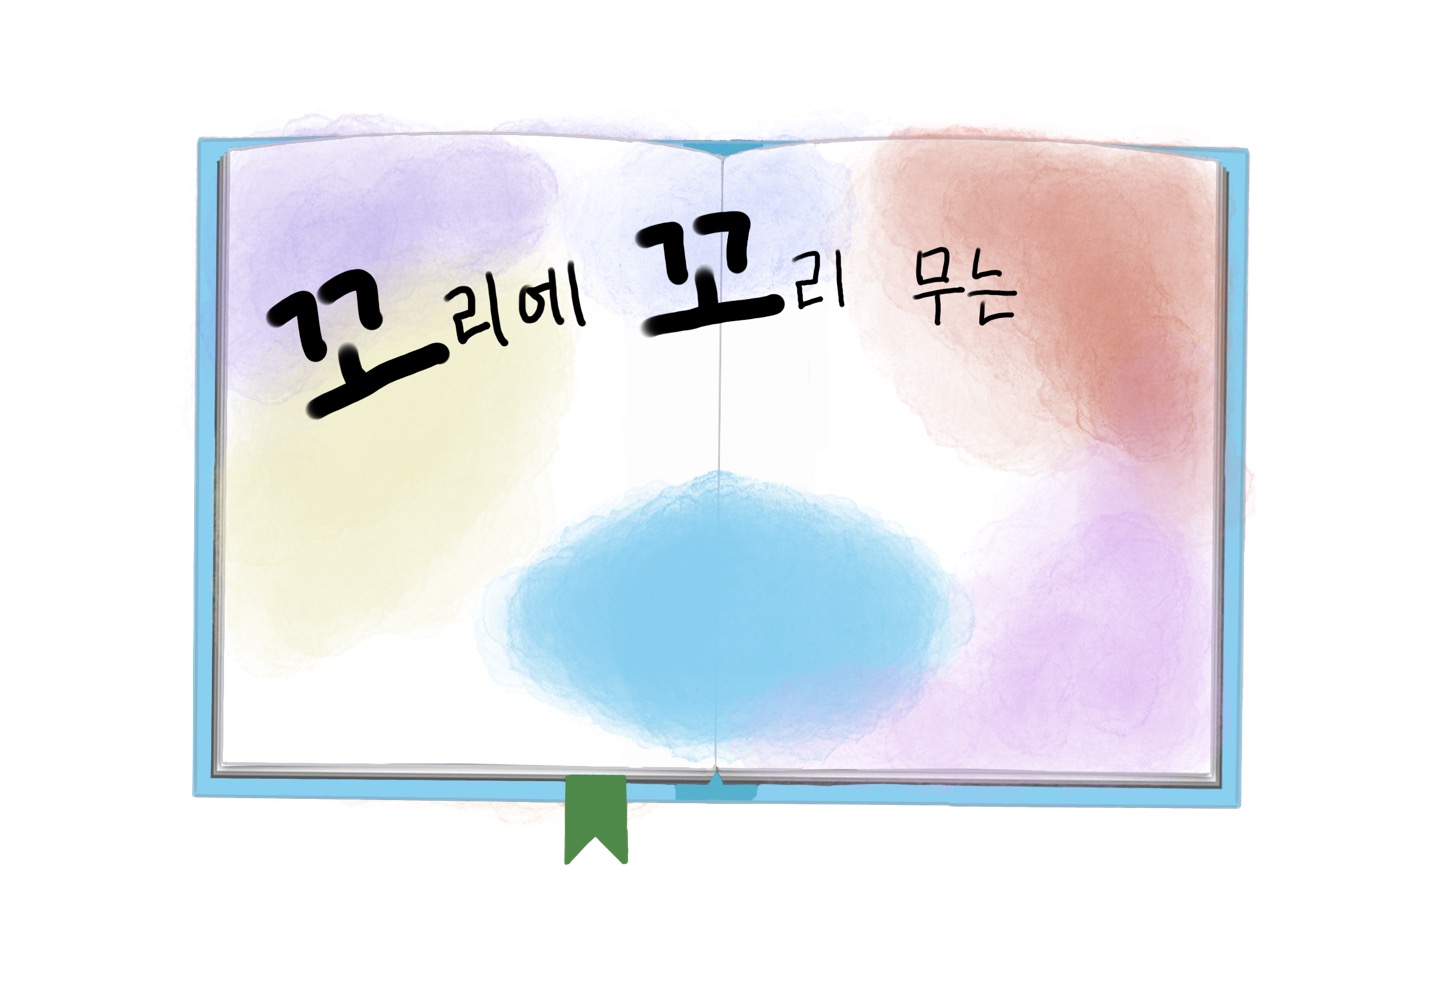 꼬리에 꼬리 무는